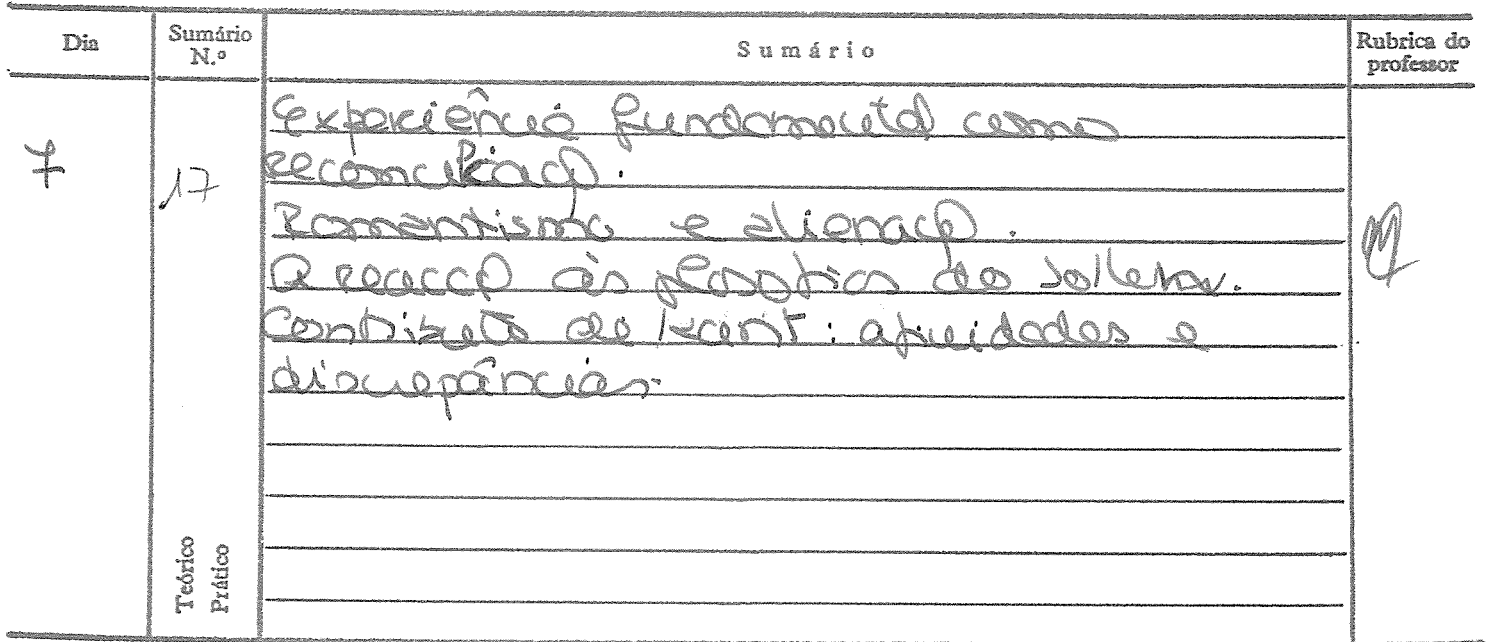 Dia
Sumário N.º
Sumário
Rubrica do professor
7
17
Experiência fundamental como
reconciliação.
Romantismo e alienação.
A reacção às filosofias do Sollen.
Contributo de Kant: afinidades e
discrepâncias.
Teórico
Prático